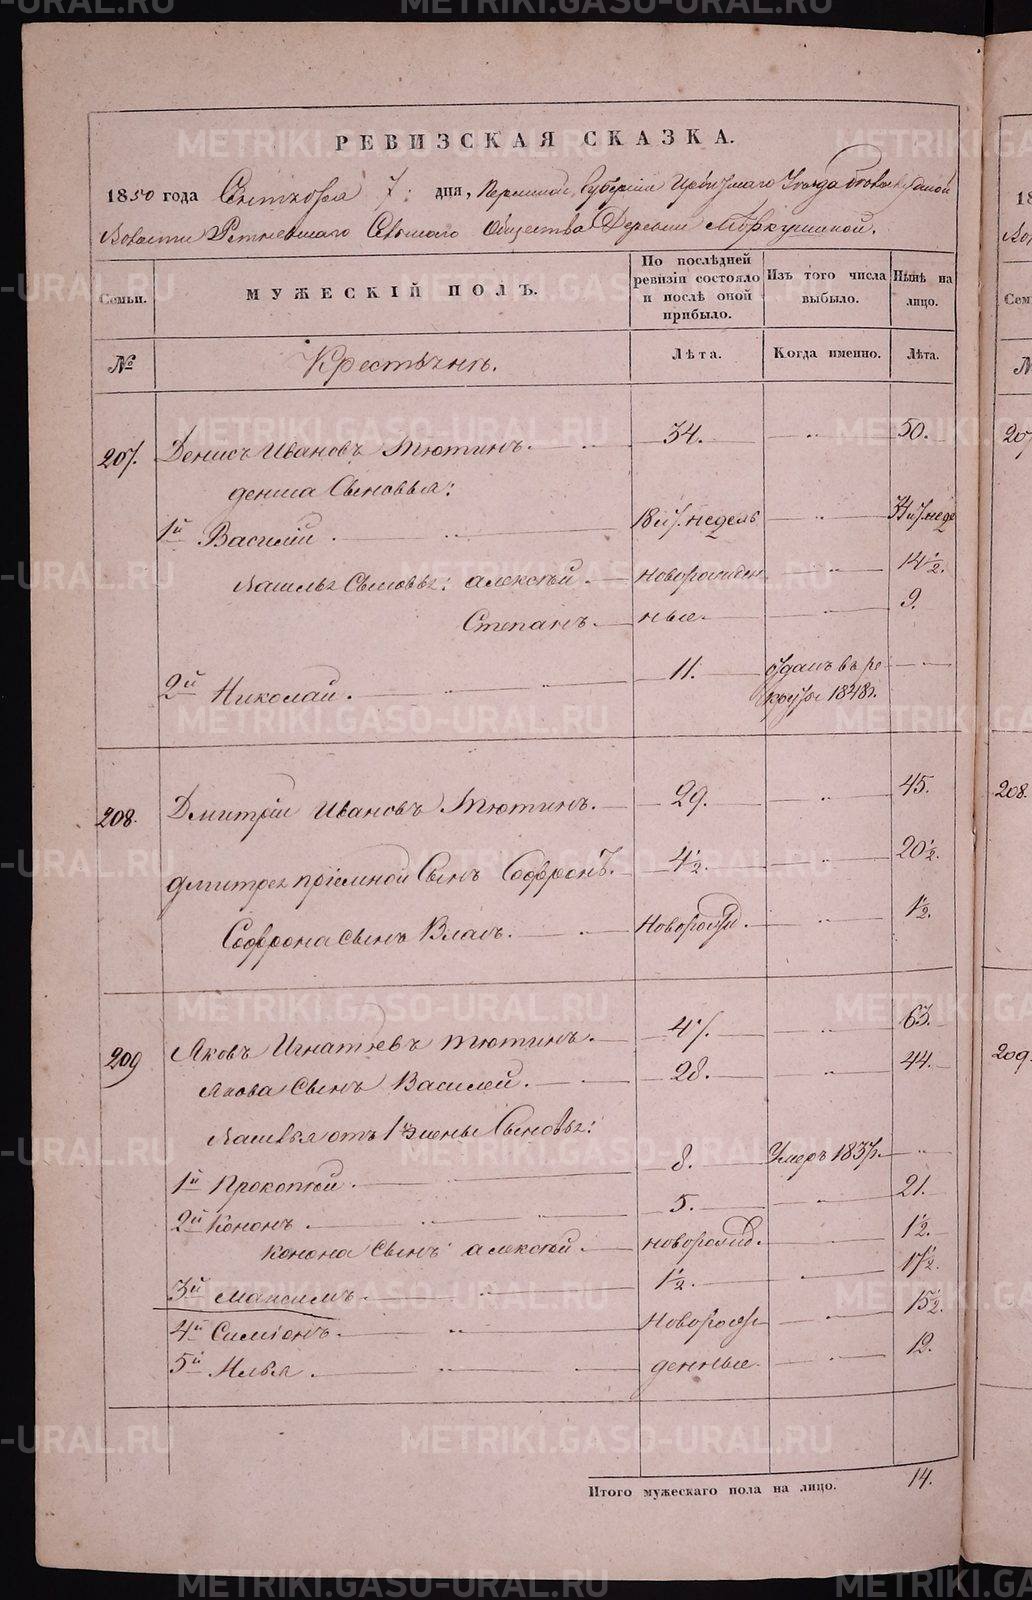 РЕВИЗСКАЯ СКАЗКА.
1850 года Сентября 7. дня, Пермской Губернии Ирбитскаго Уезда
Волости Ретневшаго Сельскаго Общества Деревни Меркушиной.
Семьи.
МУЖЕСКІЙ ПОЛЪ.
По послѣдней ревизіи состояло и послѣ оной прибыло.
Изъ того числа выбыло.
Нынѣ на лицо.
№
Крестьянъ.
Лѣта.
Когда именно.
Лѣта.
207. Денисъ Ивановъ Тютинъ. 34. 50.
дениса Сыновья:
1й Василій. 18 и 7. недель 34 и 7. неде
Васильи Сыновьи: алексѣй. новорожден 14 1/2.
Степанъ. ные. 9.
2й Николай. 11. отданъ въ ре
круты 1848 г.
208. Дмитрій Ивановъ Тютинъ. 29. 45.
дмитрея пріемной Сынъ Софронъ. 4 1/2. 20 1/2.
Софрона сынъ Власъ. Новорожд. 1/2.
209 Яковъ Игнатьевъ тютинъ. 47. 63.
Якова Сынъ Василей. 28. 44.
Васильи отъ 1 жены Сыновьи:
1й Прокопей. 8. Умеръ 1837 г.
2й Кононъ. 5. 21.
Конона Сынъ алексѣй. новорожд. 1/2.
3й Максимъ. 1 1/2. 17 1/2.
4й Симіонъ. Новорож 15 1/2.
5й Илья. денные. 12.
Итого мужескаго пола на лицо. 14.
207
208.
209.
METRIKI.GASO-URAL.RU